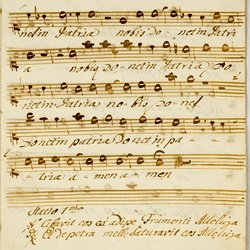 netin Patria nobis do netin Patri
a nobis do-netin Patria Do
netin Patria no-bis do-net
Donetin patria Donetin pa-
tria a men a men
Statio 1ma
Cibavit eos ex Adipe Frumenti Alleluja
et de petra melle Saturavit eos Alleluja